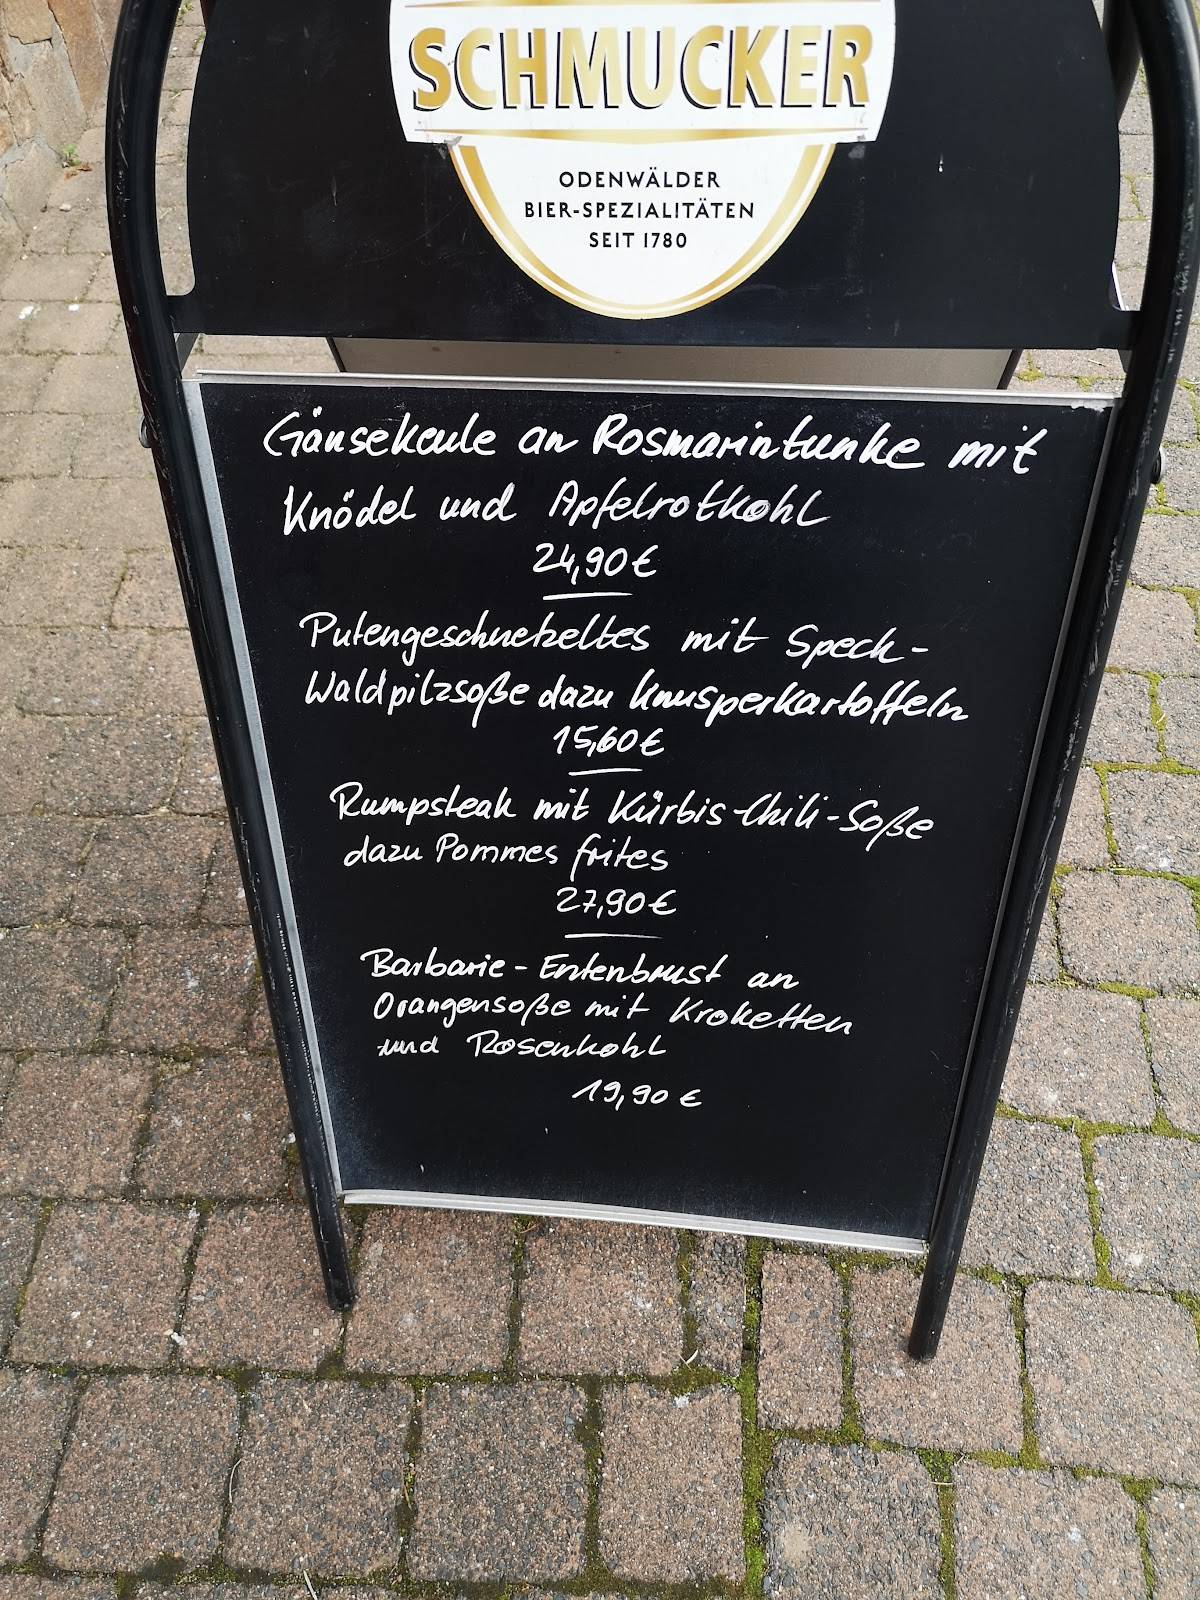 SCHMUCKER
ODENWÄLDER
BIER-SPEZIALITÄTEN
SEIT 1780
Gänsekeule an Rosmarintunke mit
Knödel und Apfelrotkohl
24,90 €
Putengeschnetzeltes mit Speck-
Waldpilzsoße dazu Knusperkartoffeln
15,60 €
Rumpsteak mit Kürbis-Chili-Soße
dazu Pommes frites
27,90 €
Barbarie-Entenbrust an
Orangensoße mit Kroketten
und Rosenkohl
19,90 €